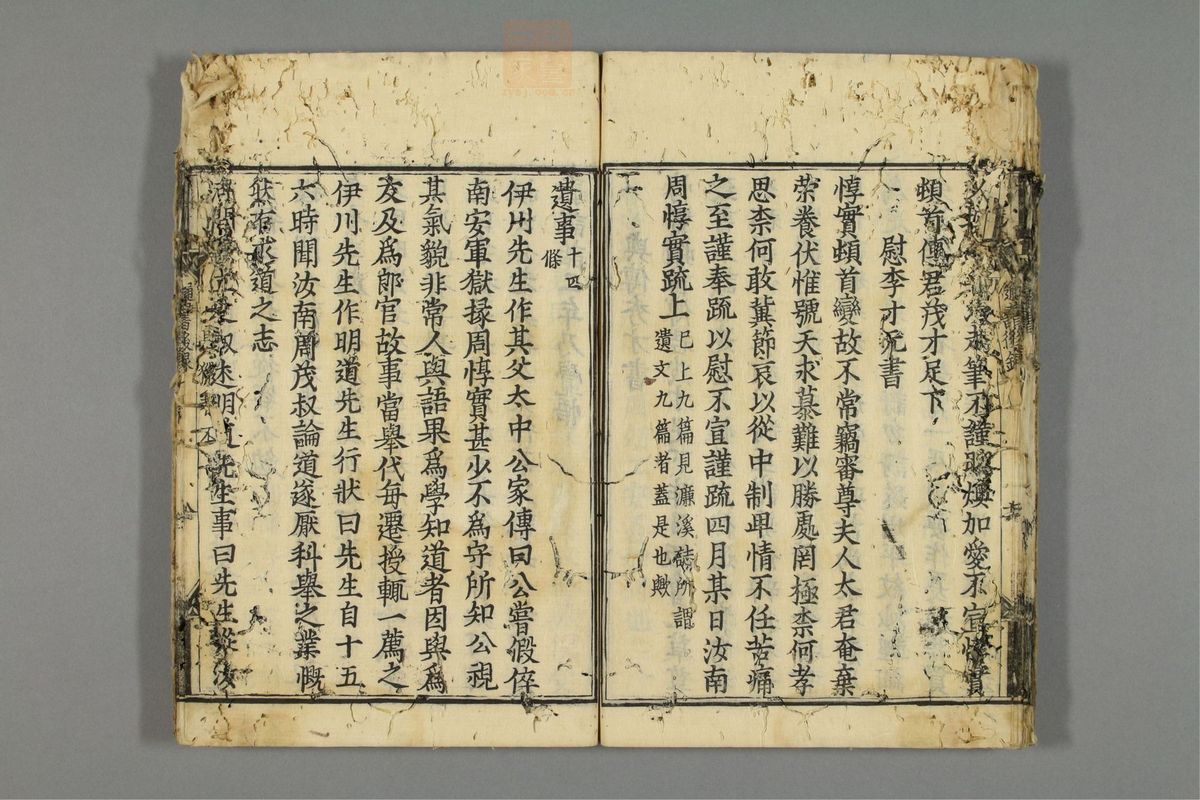 求筆不謹跼煩加愛不宣惇實
頓首傅君茂才足下
慰李才元書
惇實頓首變故不常竊審尊夫人太君奄棄
榮養伏惟號天求慕難以勝處罔極柰何孝
思柰何敢冀節哀以從中制卑情不任苦痛
之至謹奉疏以慰不宣謹疏四月某日汝南
周惇實疏上
已上九篇見濂溪誌所謂
遺文九篇者蓋是也歟
遺事
十四
條
伊川先生作其父太中公家傳曰公嘗假倅
南安軍獄掾周惇實甚少不爲守所知公視
其氣貌非常人與語果爲學知道者因與爲
友及爲郎官故事當舉代每遷授輒一薦之
伊川先生作明道先生行狀曰先生自十五
六時聞汝南周茂叔論道遂厭科舉之業慨
然有求道之志
叔述明道先生事曰先生從汝